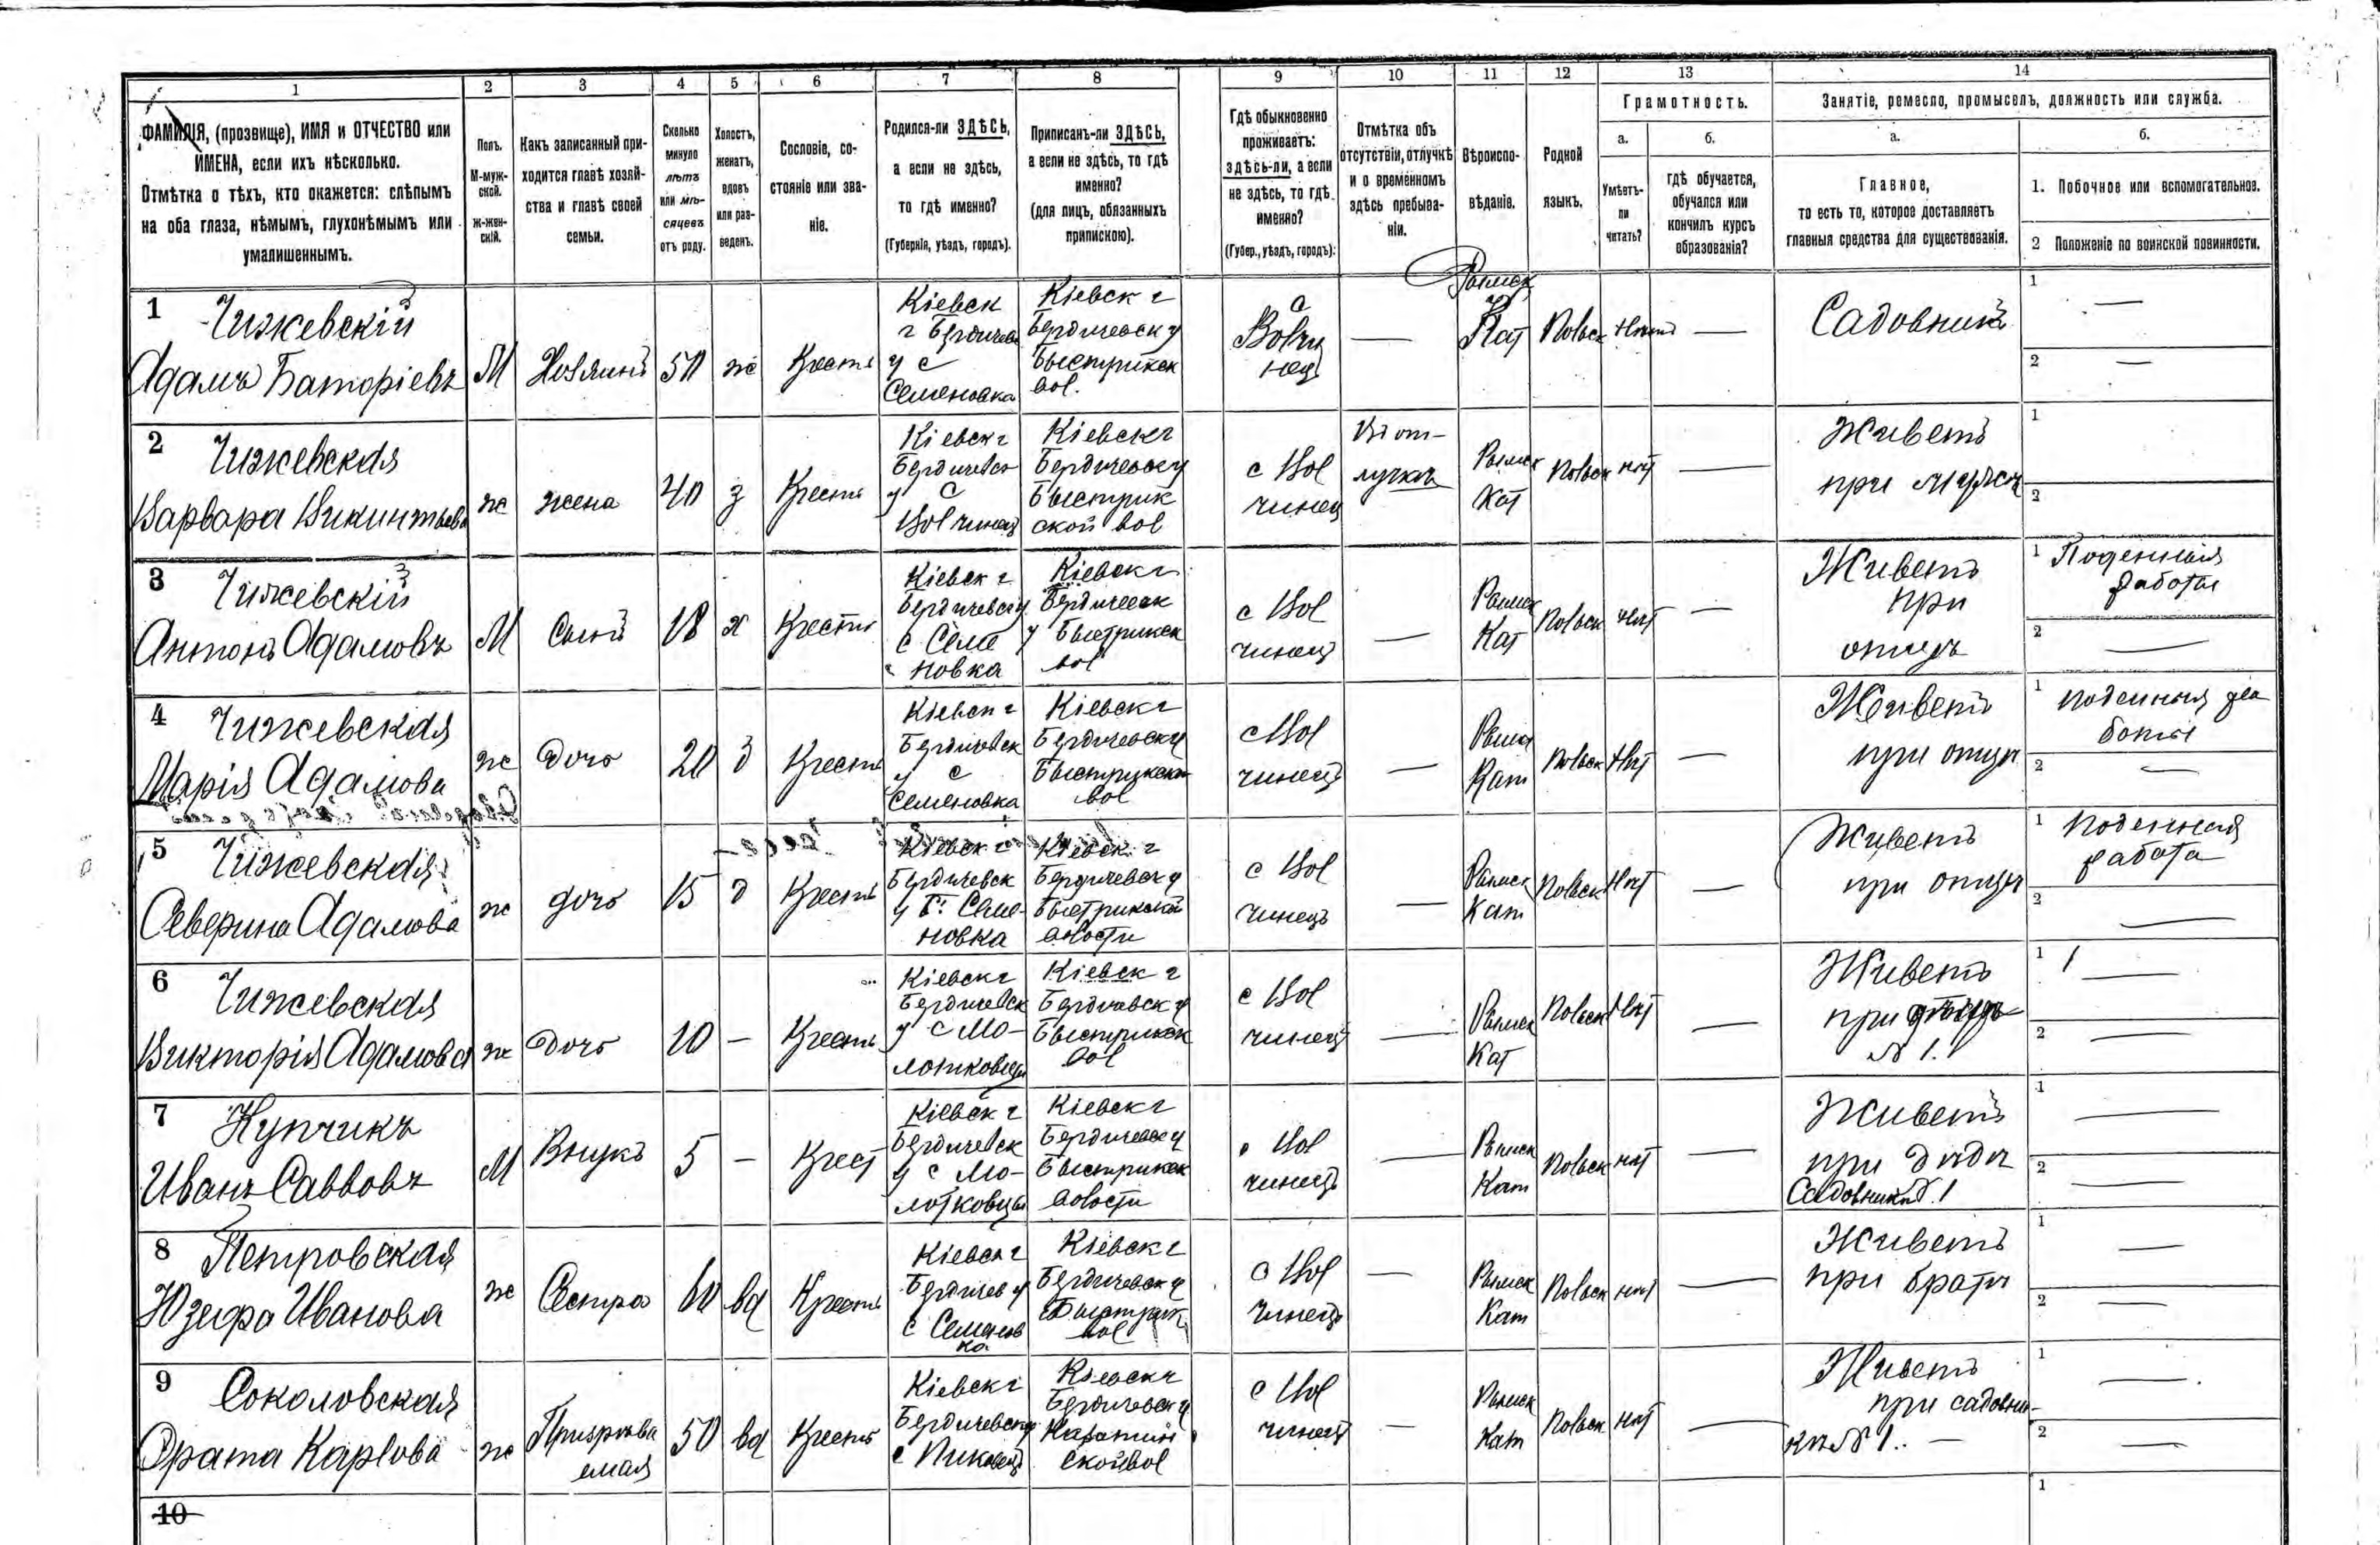 1 2 3 4 5 6 7 8 9 10 11 12 13 14
ФАМИЛІЯ, (прозвище), ИМЯ и ОТЧЕСТВО или
ИМЕНА, если ихъ нѣсколько.
Отмѣтка о тѣхъ, кто окажется: слѣпымъ
на оба глаза, нѣмымъ, глухонѣмымъ или
умалишеннымъ.
Полъ.
М-муж-
ской.
ж-жен-
скій.
Какъ записанный при-
ходится главѣ хозяй-
ства и главѣ своей
семьи.
Сколько
минуло
лѣтъ
или мѣ-
сяцевъ
отъ роду.
Холостъ,
женатъ,
вдовъ
или раз-
веденъ.
Сословіе, со-
стояніе или зва-
ніе.
Родился-ли ЗДѢСЬ,
а если не здѣсь,
то гдѣ именно?
(Губернія, уѣздъ, городъ).
Приписанъ-ли ЗДѢСЬ,
а если не здѣсь, то гдѣ
именно?
(для лицъ, обязанныхъ
припискою).
Гдѣ обыкновенно
проживаетъ:
здѣсь-ли, а если
не здѣсь, то гдѣ
именно?
(Губер., уѣздъ, городъ):
Отмѣтка объ
отсутствіи, отлучкѣ
и о временномъ
здѣсь пребыва-
ніи.
Вѣроиспо-
вѣданіе.
Родной
языкъ.
Грамотность.
а.
Умѣетъ-
ли
читать?
б.
гдѣ обучается,
обучался или
кончилъ курсъ
образованія?
Занятіе, ремесло, промыселъ, должность или служба.
а.
Главное,
то есть то, которое доставляетъ
главныя средства для существованія.
б.
1. Побочное или вспомогательное.
2 Положеніе по воинской повинности.
1 Чижевскій
Адамъ Баторіевъ
М
Хозяинъ
50
ж
Крестъ
Кіевск
г Бердичевс
у с
Семеновка
Кіевск г
Бердичевск у
Быстрикск
вол.
с
Волчи
нец
—
Римск
Кат
Польск
Нѣтъ
—
Садовникъ
1 —
2 —
2 Чижевская
Варвара Викинтьева
ж
жена
40
з
Крест
Кіевск г
Бердичевск
у с
Волчинец
Кіевск г
Бердичевск у
Быстрик
ской вол
с Вол
чинец
Въ от-
лучкѣ
Римск
Кат
Польск
нѣт
—
Живетъ
при мужѣ
1
2
3 Чижевскій
Антонъ Адамовъ
М
Сынъ
18
х
Крестъ
Кіевск г
Бердичевск у
с Семе
новка
Кіевск г
Бердичевск
у Быстрикск
вол
с Вол
чинец
—
Римск
Кат
Польск
Нѣт
—
Живетъ
при
отцѣ
1 Поденныя
работы
2 —
4 Чижевская
Марія Адамова
ж
дочь
20
д
Крест
Кіевск г
Бердичевск
у с
Семеновка
Кіевск г
Бердичевск у
Быстрикск
вол
с Вол
чинец
—
Римск
Кат
Польск
Нѣт
—
Живетъ
при отцѣ
1 поденныя ра
боты
2 —
5 Чижевская
Северина Адамова
ж
дочь
15
д
Крестъ
Кіевск г
Бердичевск
у с. Семе-
новка
Кіевск г
Бердичевск у
Быстрикской
волости
с Вол
чинецъ
—
Римск
Кат
Польск
Нѣт
—
Живетъ
при отцѣ
1 поденная
работа
2 —
6 Чижевская
Викторія Адамова
ж
дочь
10
—
Крестъ
Кіевск г
Бердичевск
у с Мо-
лотковцы
Кіевск г
Бердичевск у
Быстрикск
вол
с Вол
чинец
—
Римск
Кат
Польск
Нѣт
—
Живетъ
при отцѣ
№ 1.
1 —
2 —
7 Купчикъ
Иванъ Саввовъ
М
Внукъ
5
—
Крест
Кіевск г
Бердичевск
у с Мо-
лотковцы
Кіевск г
Бердичевск у
Быстрикск
волости
с Вол
чинец
—
Римск
Кат
Польск
нѣт
—
Живетъ
при дѣдѣ
Садовникѣ № 1
1 —
2 —
8 Петровская
Юзефа Иванова
ж
Сестра
60
вд
Крестъ
Кіевск г
Бердичев у
с Семенов
ка
Кіевск г
Бердичевск у
Быстрик
вол
с Вол
чинец
—
Римск
Кат
Польск
нѣт
—
Живетъ
при братѣ
1 —
2 —
9 Соколовская
Карлова
ж
Призрѣва
емая
50
вд
Крестъ
Кіевск г
Бердичевск у
с Пиковец
Кіевск г
Бердичевск у
ской вол
с Вол
чинец
—
Римск
Кат
Польск
нѣт
—
Живетъ
при садовни-
кѣ № 1. —
1 —
2 —
10
1